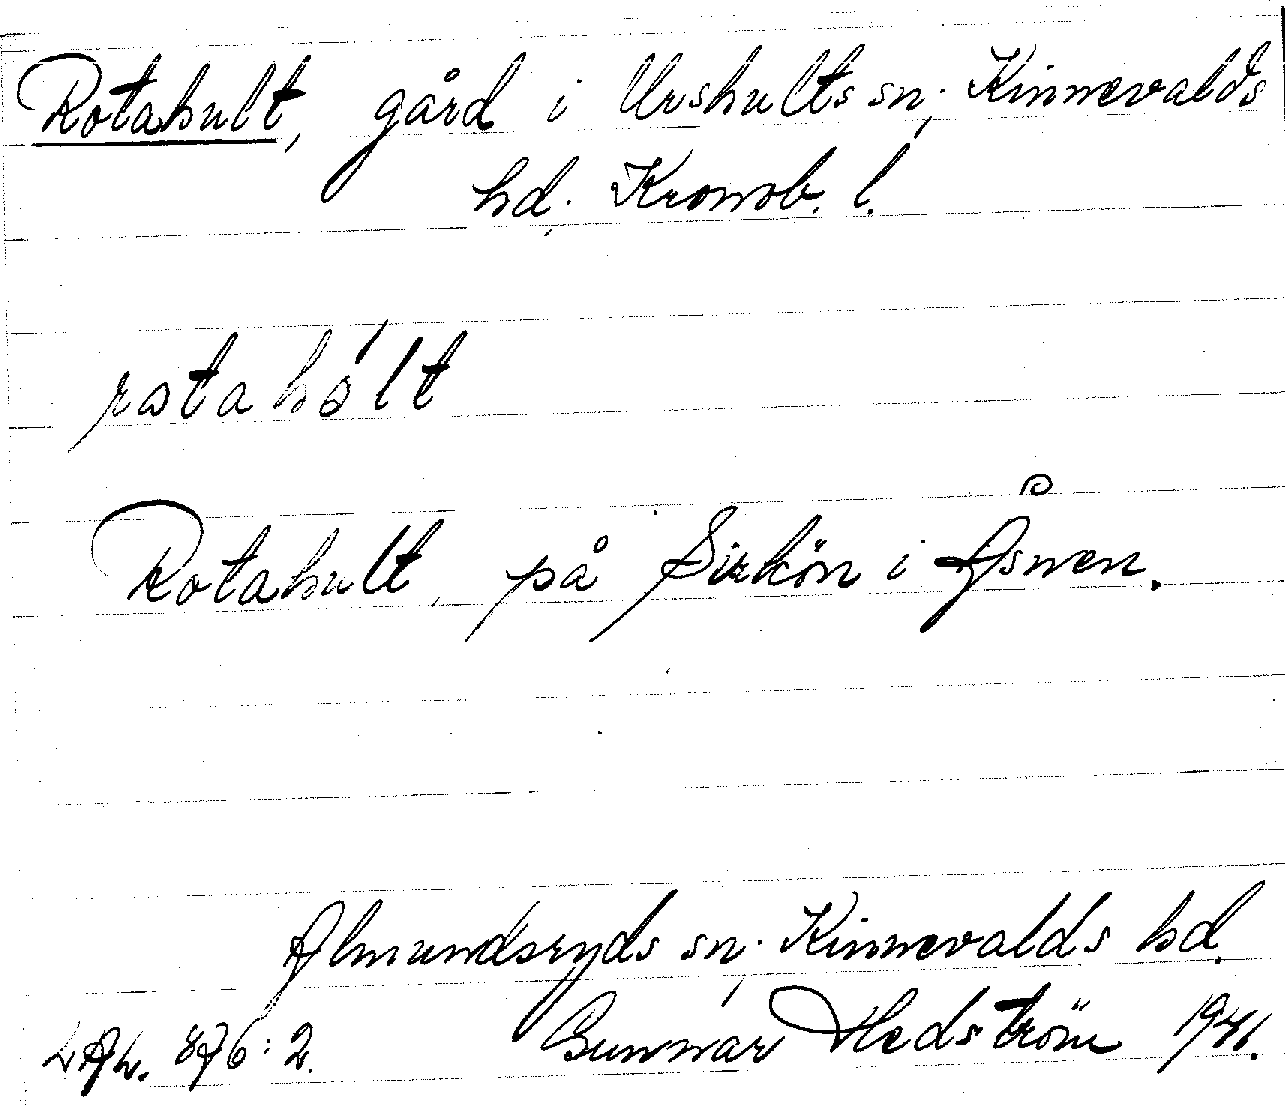 Rotahult, gård i Urshults sn, Kinnevalds
hd. Kronob. l.
rotahólt
Rotahult, på Sirkön i Åsnen.
Almundsryds sn, Kinnevalds hd.
LAL. 876:2. Gunnar Hedström 1941.